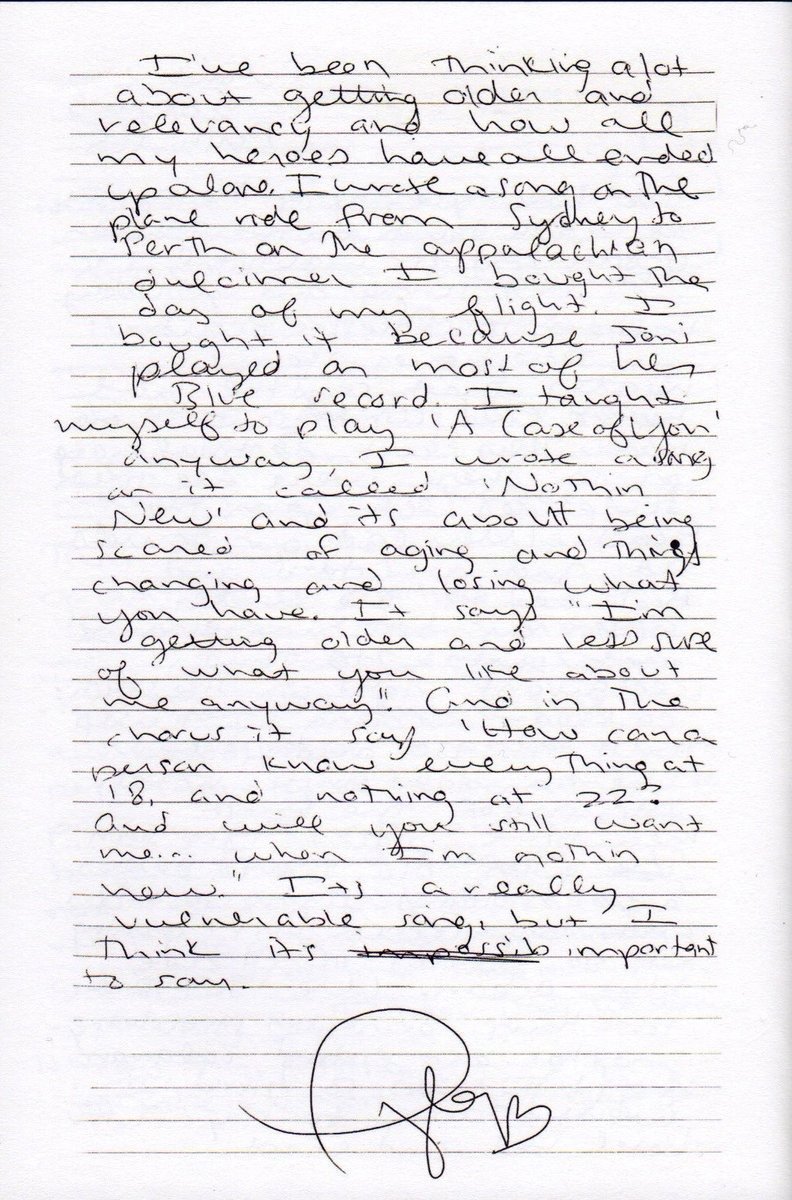 I've been thinking alot
about getting older and
relevancy and how all
my heroes have all ended
up alone. I wrote a song on the
plane ride from Sydney to
Perth on the appalachian
dulcimer I bought the
day of my flight. I
bought it because Joni
played on most of her
Blue record. I taught
myself to play 'A Case of You'
anyway, I wrote a song
on it called 'Nothin
New' and its about being
scared of aging and things
changing and losing what
you have. It says "I'm
getting older and less sure
of what you like about
me anyway". And in the
chorus it says 'How can a
person know everything at
18, and nothing at 22?
And will you still want
me... when I'm nothin
new." Its a really
vulnerable song, but I
think its impossib important
to say.